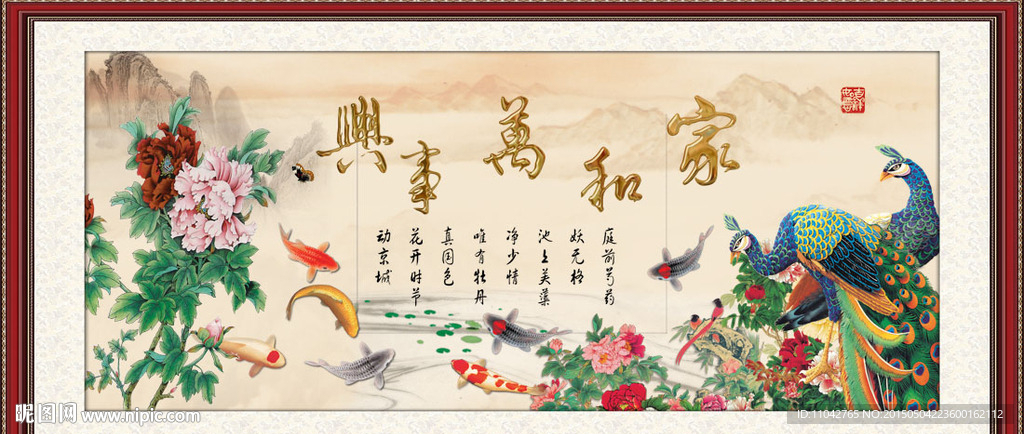 家和萬事興
庭前芍药
妖无格
池上芙蕖
净少情
唯有牡丹
真国色
花开时节
动京城
昵图网 www.nipic.com
ID:11042765 NO:20150504223600162112